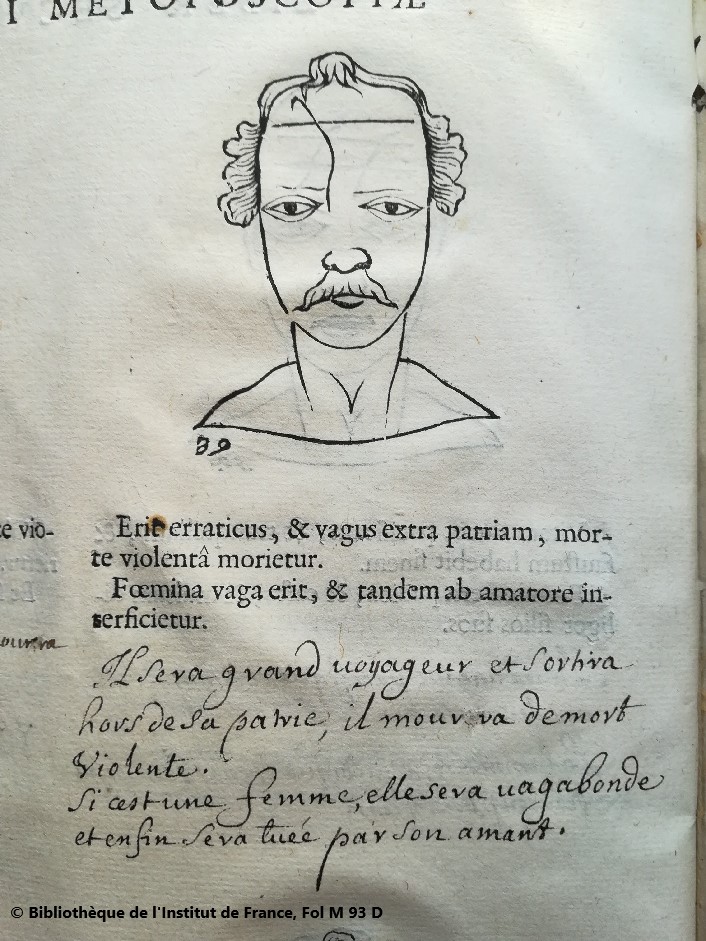 I METOPOSCOPIÆ
39
e vio-
Erit erraticus, & vagus extra patriam, mor-
te violentâ morietur.
Fœmina vaga erit, & tandem ab amatore in-
terficietur.
ourra
Il sera grand voyageur et sortira
hors de sa patrie, il mourra de mort
Violente.
Si c'est une femme, elle sera vagabonde
et enfin sera tuée par son amant.
© Bibliothèque de l'Institut de France, Fol M 93 D